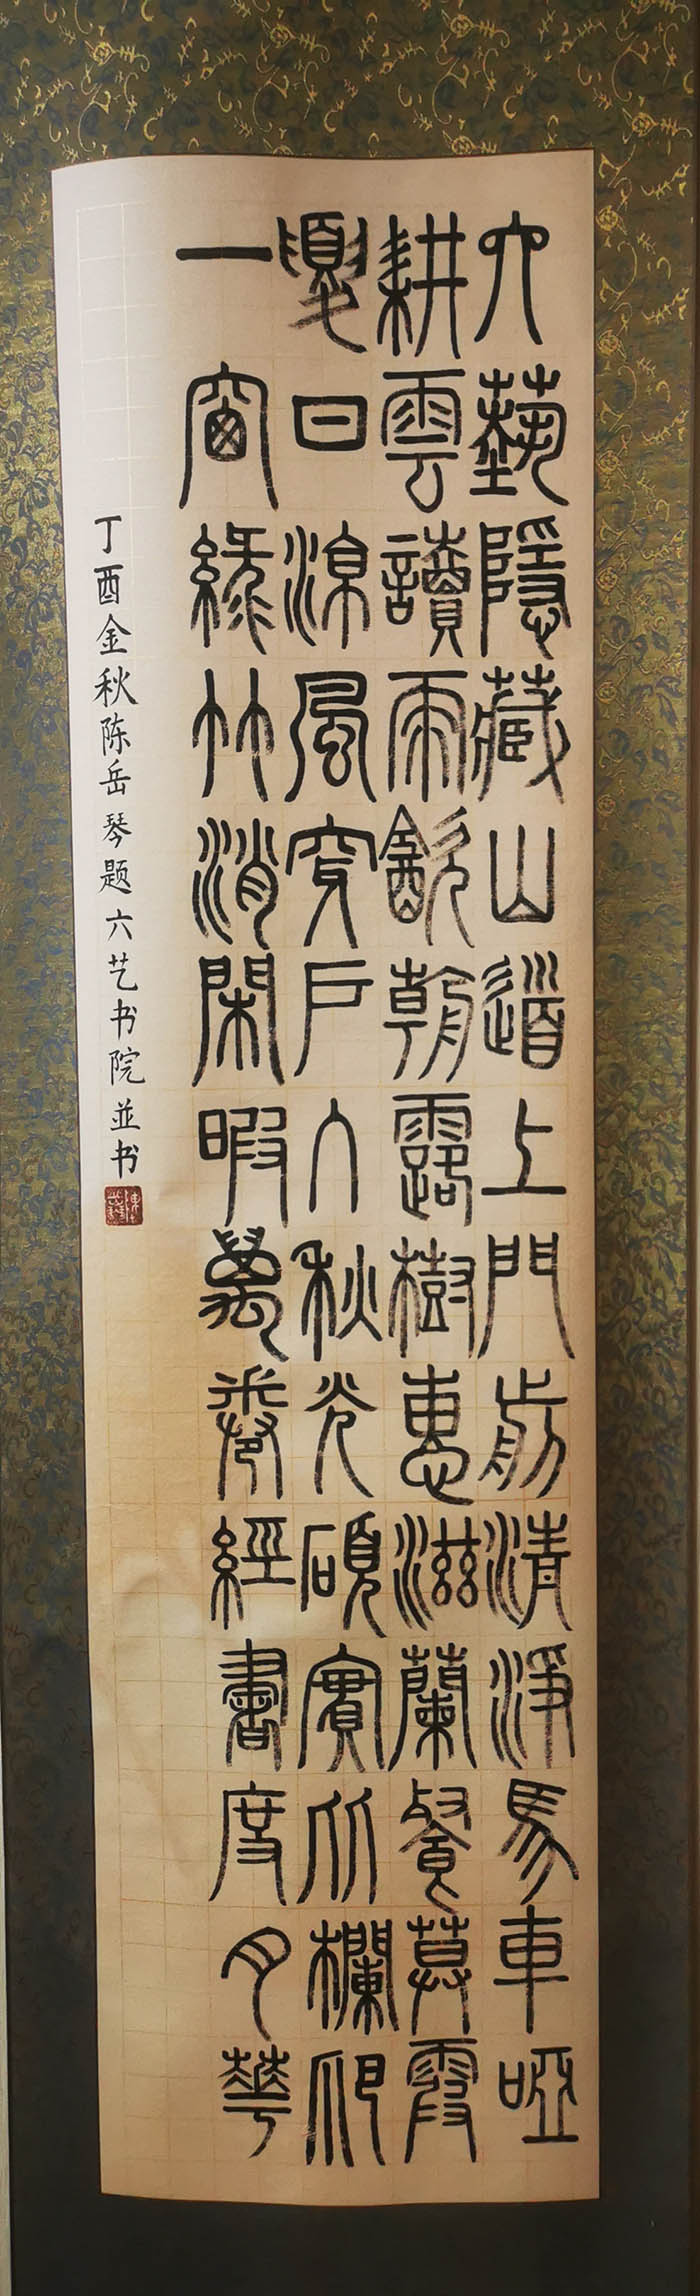 六藝隱藏山道上門前清淨馬車啞
耕雲讀雨飲朝露樹惠滋蘭餐暮霞
夏日涼風穿戶入秋光碩實欄
一窗綠竹消閑暇萬卷經書度月華
丁酉金秋陈岳琴题六艺书院並书